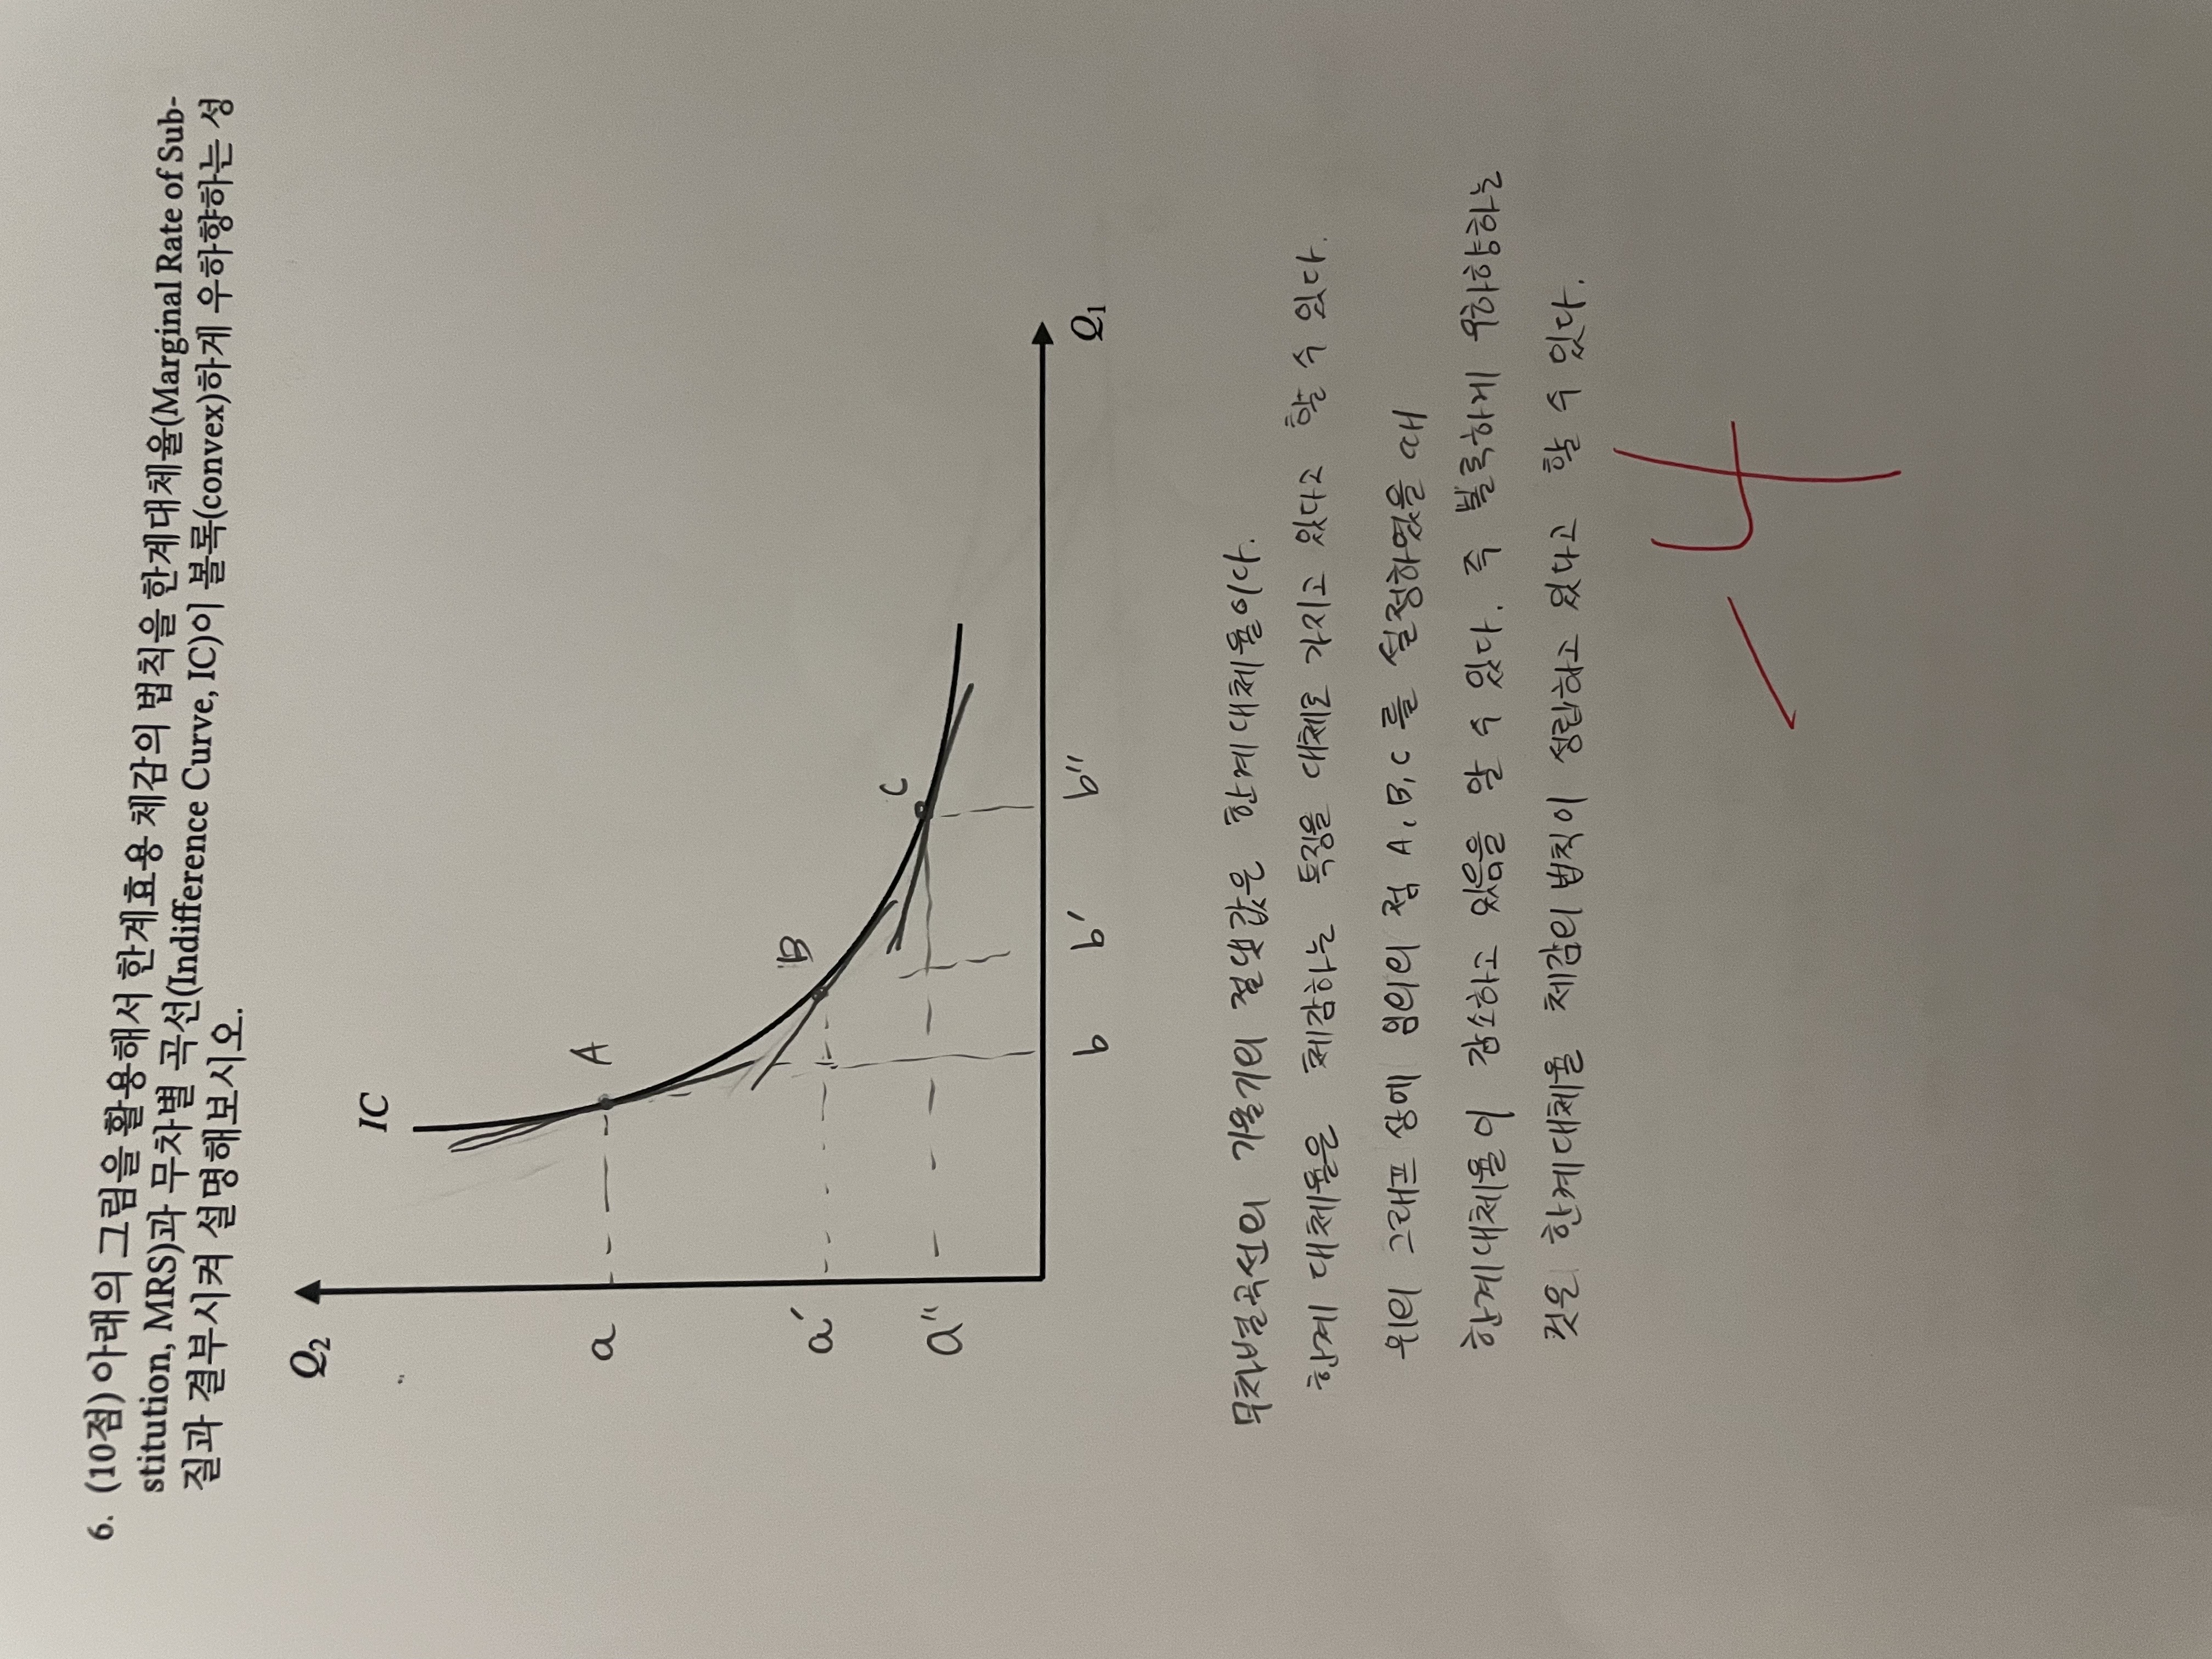 6. (10점) 아래의 그림을 활용해서 한계효용 체감의 법칙을 한계대체율(Marginal Rate of Sub-
stitution, MRS)과 무차별 곡선(Indifference Curve, IC)이 볼록(convex)하게 우하향하는 성
질과 결부시켜 설명해보시오.
Q₂
IC
a A
a′ B
a″ C
b b′ b″
Q₁
무차별곡선의 기울기의 절댓값은 한계대체율이다.
한계 대체율은 체감하는 특징을 대체로 가지고 있다고 할 수 있다.
위의 그래프 상에 임의의 점 A, B, C 를 설정하였을 때
한계대체율이 감소하고 있음을 알 수 있다. 즉 볼록하게 우하향하는
것은 한계대체율 체감의 법칙이 성립하고 있다고 할 수 있다.
-4